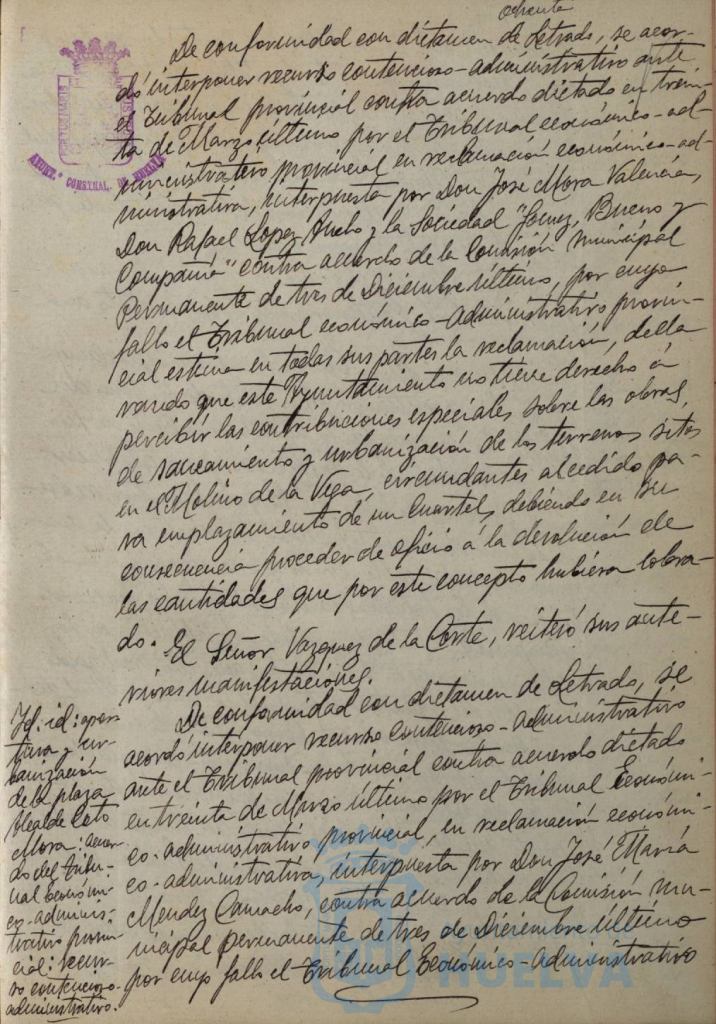 ochenta
De conformidad con dictamen de Letrado, se acor-
dó interponer recurso contencioso-administrativo ante
el Tribunal provincial contra acuerdo dictado en trein-
ta de Marzo último por el Tribunal económico-ad-
ministrativo provincial en reclamación económico-ad-
ministrativa, interpuesta por Don José Mora Valencia,
Don Rafael Lopez y la Sociedad "Gomez, Bueno y
Compañia" contra acuerdo de la Comisión Municipal
Permanente de tres de Diciembre último, por cuyo
fallo el Tribunal económico-administrativo provin-
cial estima en todas sus partes la reclamación, decla
rando que este Ayuntamiento no tiene derecho á
percibir las contribuciones especiales sobre las obras,
de saneamiento y urbanización de los terrenos sitos
en el Molino de la Vega, circundantes al cedido pa-
ra emplazamiento de un Cuartel, debiendo en su
consecuencia proceder de oficio á la devolución de
las cantidades que por este concepto hubiera cobra-
do. El Señor Vazquez de la Corte, reiteró sus ante-
riores manifestaciones.
De conformidad con dictamen de Letrado, se
acordó interponer recurso contencioso-administrativo
ante el Tribunal provincial contra acuerdo dictado
en treinta de Marzo último por el Tribunal Económi-
co-administrativo provincial, en reclamación económi-
co-administrativa, interpuesta por Don José María
Mendez Camacho, contra acuerdo de la Comisión mu-
nicipal permanente de tres de Diciembre último
por cuyo fallo el Tribunal Económico-administrativo
Id: id: aper
tura y ur-
banización
de la plaza
Alcalde Coto
Mora: acuer
do del Tribu-
nal Económi
co-adminis-
trativo provin
cial: recur-
so contencioso-
administrativo.
AYUNT.º CONSTNAL. DE HUELVA
HUELVA